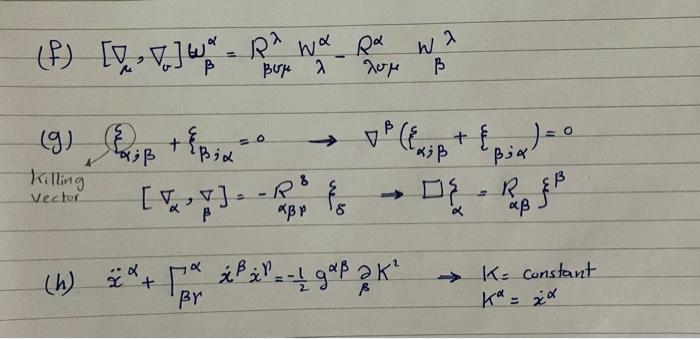 (f) [∇_μ, ∇_σ] W^α_β = R^λ_βσμ W^α_λ - R^α_λσμ W^λ_β
(g) ξ_α;β + ξ_β;α = 0 → ∇^β (ξ_α;β + ξ_β;α) = 0
Killing vector
[∇_α, ∇_β] = -R^δ_αβγ ξ_δ → □ξ_α = R_αβ ξ^β
(h) ẍ^α + Γ^α_βγ ẋ^β ẋ^γ = -1/2 g^αβ ∂_β K² → K = constant
K^α = ẋ^α